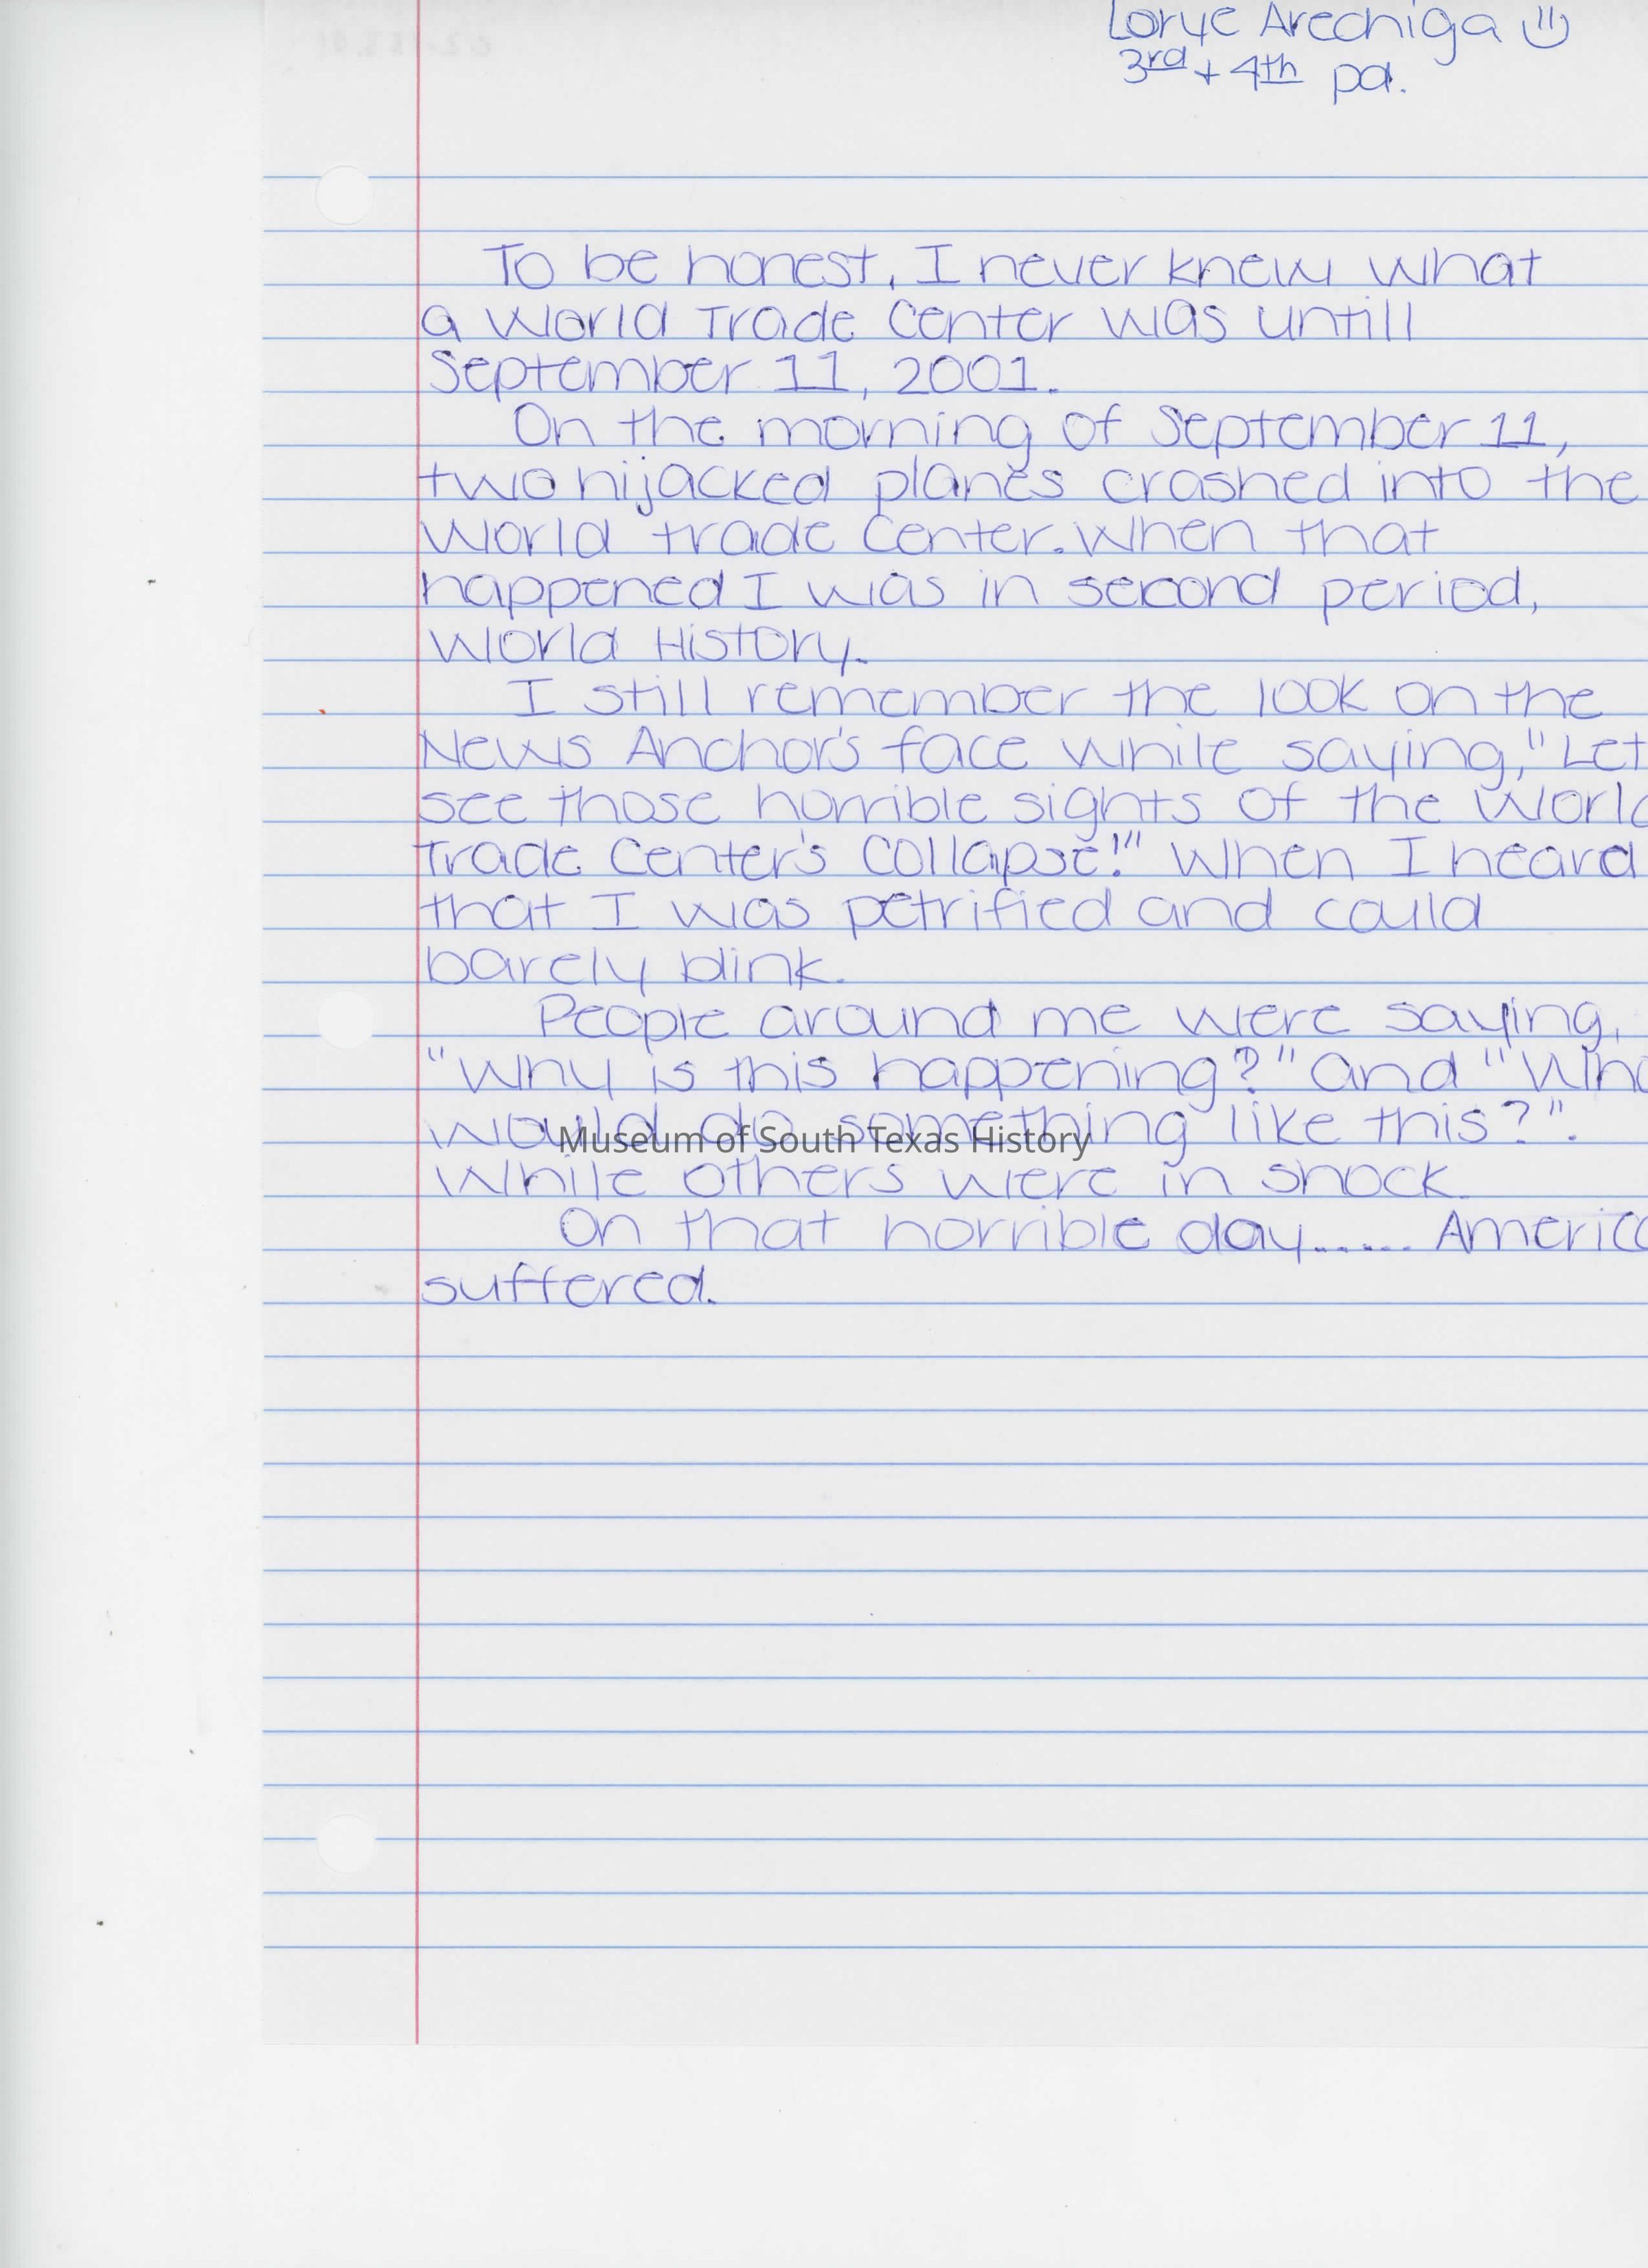 Lorye Arechiga
3rd + 4th pd.
To be honest, I never knew what
a World Trade Center was untill
September 11, 2001.
On the morning of September 11,
two hijacked planes crashed into the
World trade Center. When that
happened I was in second period,
World History.
I still remember the look on the
News Anchor's face while saying, "Let
see those horrible sights of the World
Trade Center's Collapse!" When I heard
that I was petrified and could
barely blink.
People around me were saying,
"Why is this happening?" and "Who
would do something like this?".
While others were in shock.
On that horrible day...... America
suffered.
Museum of South Texas History